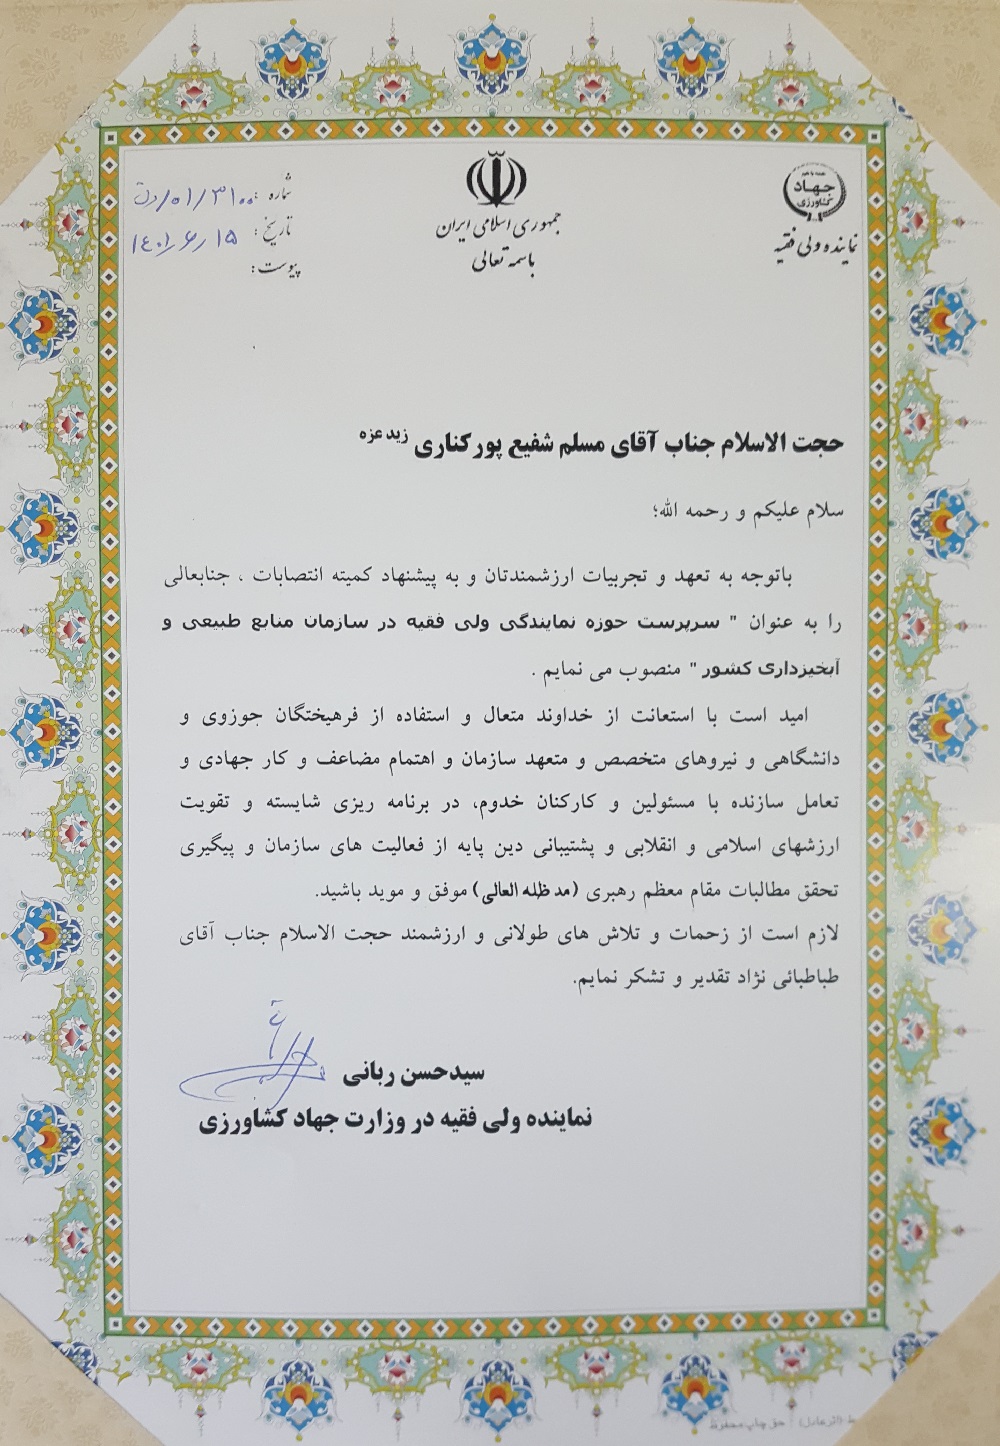 جهاد
کشاورزی
نماینده ولی فقیه
جمهوری اسلامی ایران
باسمه تعالی
شماره: ۰۱/۳۱۰۰/
تاریخ: ۱۴۰۱/۶/۱۵
پیوست:
حجت الاسلام جناب آقای مسلم شفیع پور کناری زید عزه
سلام علیکم و رحمه الله؛
باتوجه به تعهد و تجربیات ارزشمندتان و به پیشنهاد کمیته انتصابات ، جنابعالی
را به عنوان " سرپرست حوزه نمایندگی ولی فقیه در سازمان منابع طبیعی و
آبخیزداری کشور " منصوب می نمایم .
امید است با استعانت از خداوند متعال و استفاده از فرهیختگان جوزوی و
دانشگاهی و نیروهای متخصص و متعهد سازمان و اهتمام مضاعف و کار جهادی و
تعامل سازنده با مسئولین و کارکنان خدوم، در برنامه ریزی شایسته و تقویت
ارزشهای اسلامی و انقلابی و پشتیبانی دین پایه از فعالیت های سازمان و پیگیری
تحقق مطالبات مقام معظم رهبری (مد ظله العالی) موفق و موید باشید.
لازم است از زحمات و تلاش های طولانی و ارزشمند حجت الاسلام جناب آقای
طباطبائی نژاد تقدیر و تشکر نمایم.
سیدحسن ربانی
نماینده ولی فقیه در وزارت جهاد کشاورزی
حق چاپ محفوظ